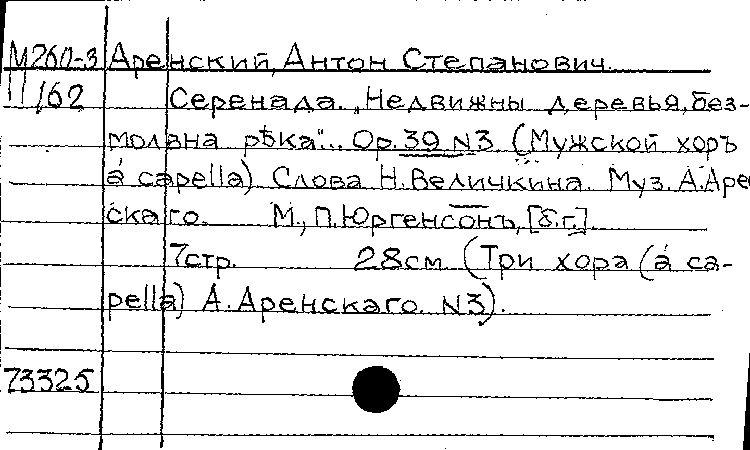 М260-3 Аренский, Антон Степанович.
11/62 Серенада. „Недвижны деревья, без-
молвна рѣка"... Ор. 39 N3. (Мужской хоръ
à capella) Слова Н. Величкина. Муз. А. Аре
скаго. М., П. Юргенсонъ, [б.г.].
7стр. 28см. (Три хора (à ca-
pella) А. Аренскаго. N3).
73325